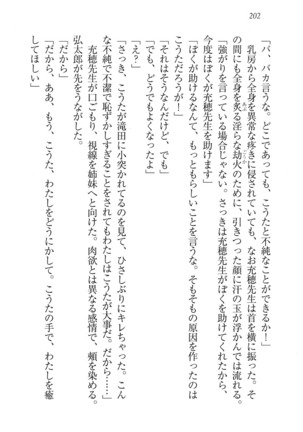 202
「バ、バカ言うな。どこであっても、こうたと不純なことはできない」
乳房から全身を異常な疼きに侵されていても、なお充穂先生は首を横に振った。そ
の間にも全身を炙る淫らな劫火のために、引きつった顔に汗の玉が浮かんでは流れる。
「強がりを言っている場合じゃない。さっきは充穂先生がぼくを助けてくれたから、
今度はぼくが充穂先生を助けます」
「ぼくが助けるなんて、もっともらしいことを言うな。そもそもの原因を作ったのは
こうただろうが!」
「それはそうなんだけど、でも」
「でも、どうでもよくなったよ」
「え?」
「さっき、こうたが滝田に小突かれてるのを見て、ひさしぶりにキレちゃった。こん
な不純で不潔で恥ずかしすぎることをされてもわたしはこうたが大事だ。だから……」
充穂先生が口ごもり、視線を姉妹へと向けた。肉欲とは異なる感情で、頬を染める。
弘太郎が先をうながした。
「だから」
「だから、ああ、もう、こうた、わたしをどうにかして。こうたの手で、わたしを癒
してほしい」